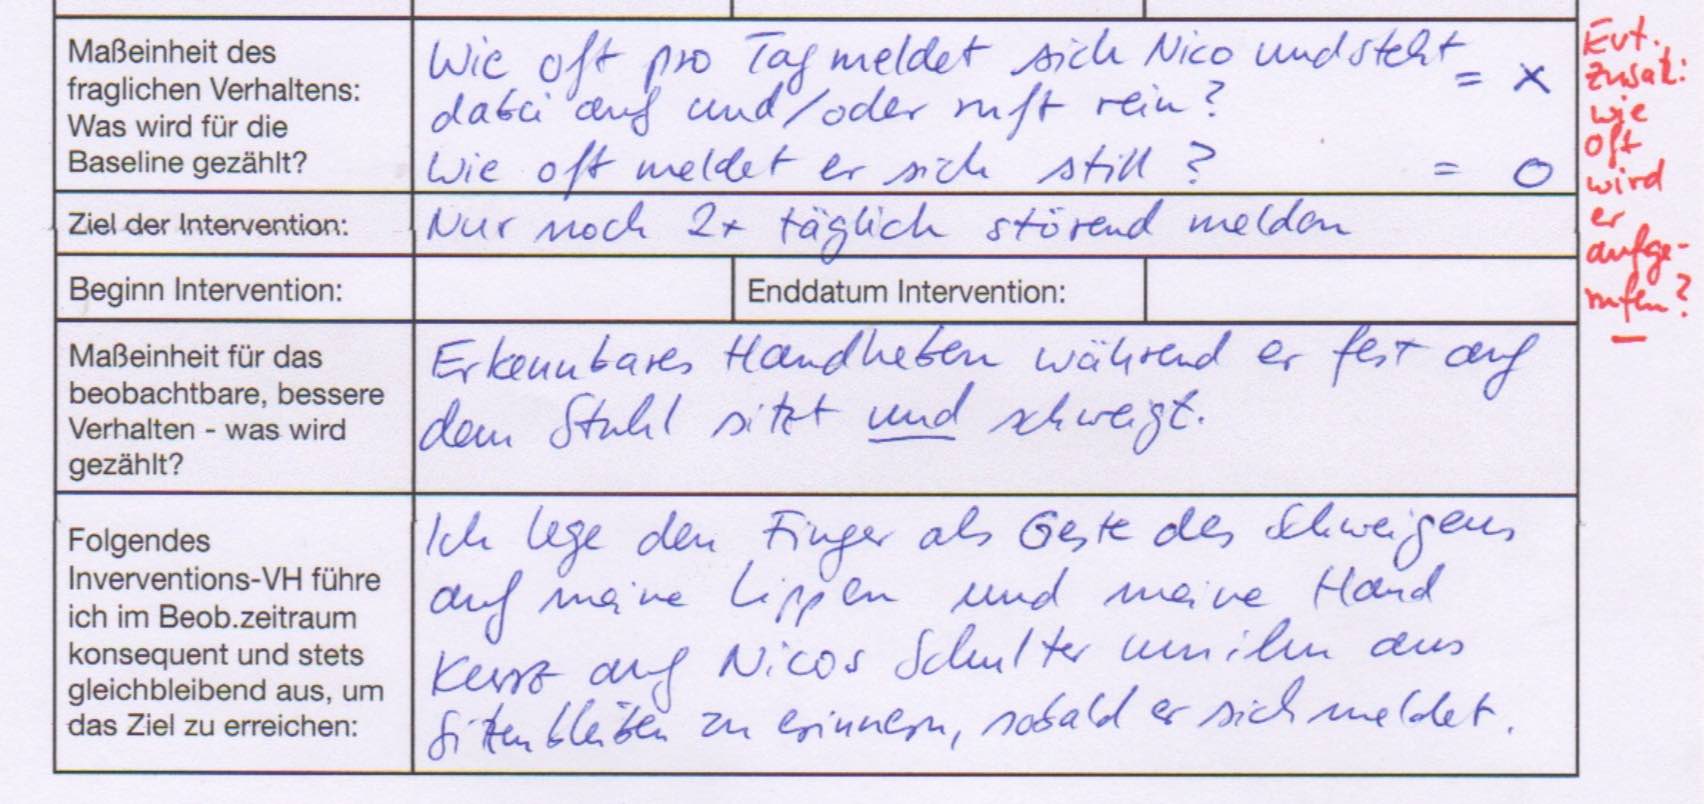 Maßeinheit des
fraglichen Verhaltens:
Was wird für die
Baseline gezählt?
Wie oft pro Tag meldet sich Nico und steht
dabei auf und/oder ruft rein? = X
Wie oft meldet er sich still? = O
Ziel der Intervention:
Nur noch 2x täglich störend melden
Beginn Intervention:
Enddatum Intervention:
Maßeinheit für das
beobachtbare, bessere
Verhalten - was wird
gezählt?
Erkennbares Handheben während er fest auf
dem Stuhl sitzt und schweigt.
Folgendes
Inverventions-VH führe
ich im Beob.zeitraum
konsequent und stets
gleichbleibend aus, um
das Ziel zu erreichen:
Ich lege den Finger als Geste des Schweigens
auf meine Lippen und meine Hand
kurz auf Nicos Schulter um ihn ans
Sitzenbleiben zu erinnern, sobald er sich meldet.
Evt.
Zusatz:
wie
oft
wird
er
aufge-
rufen?